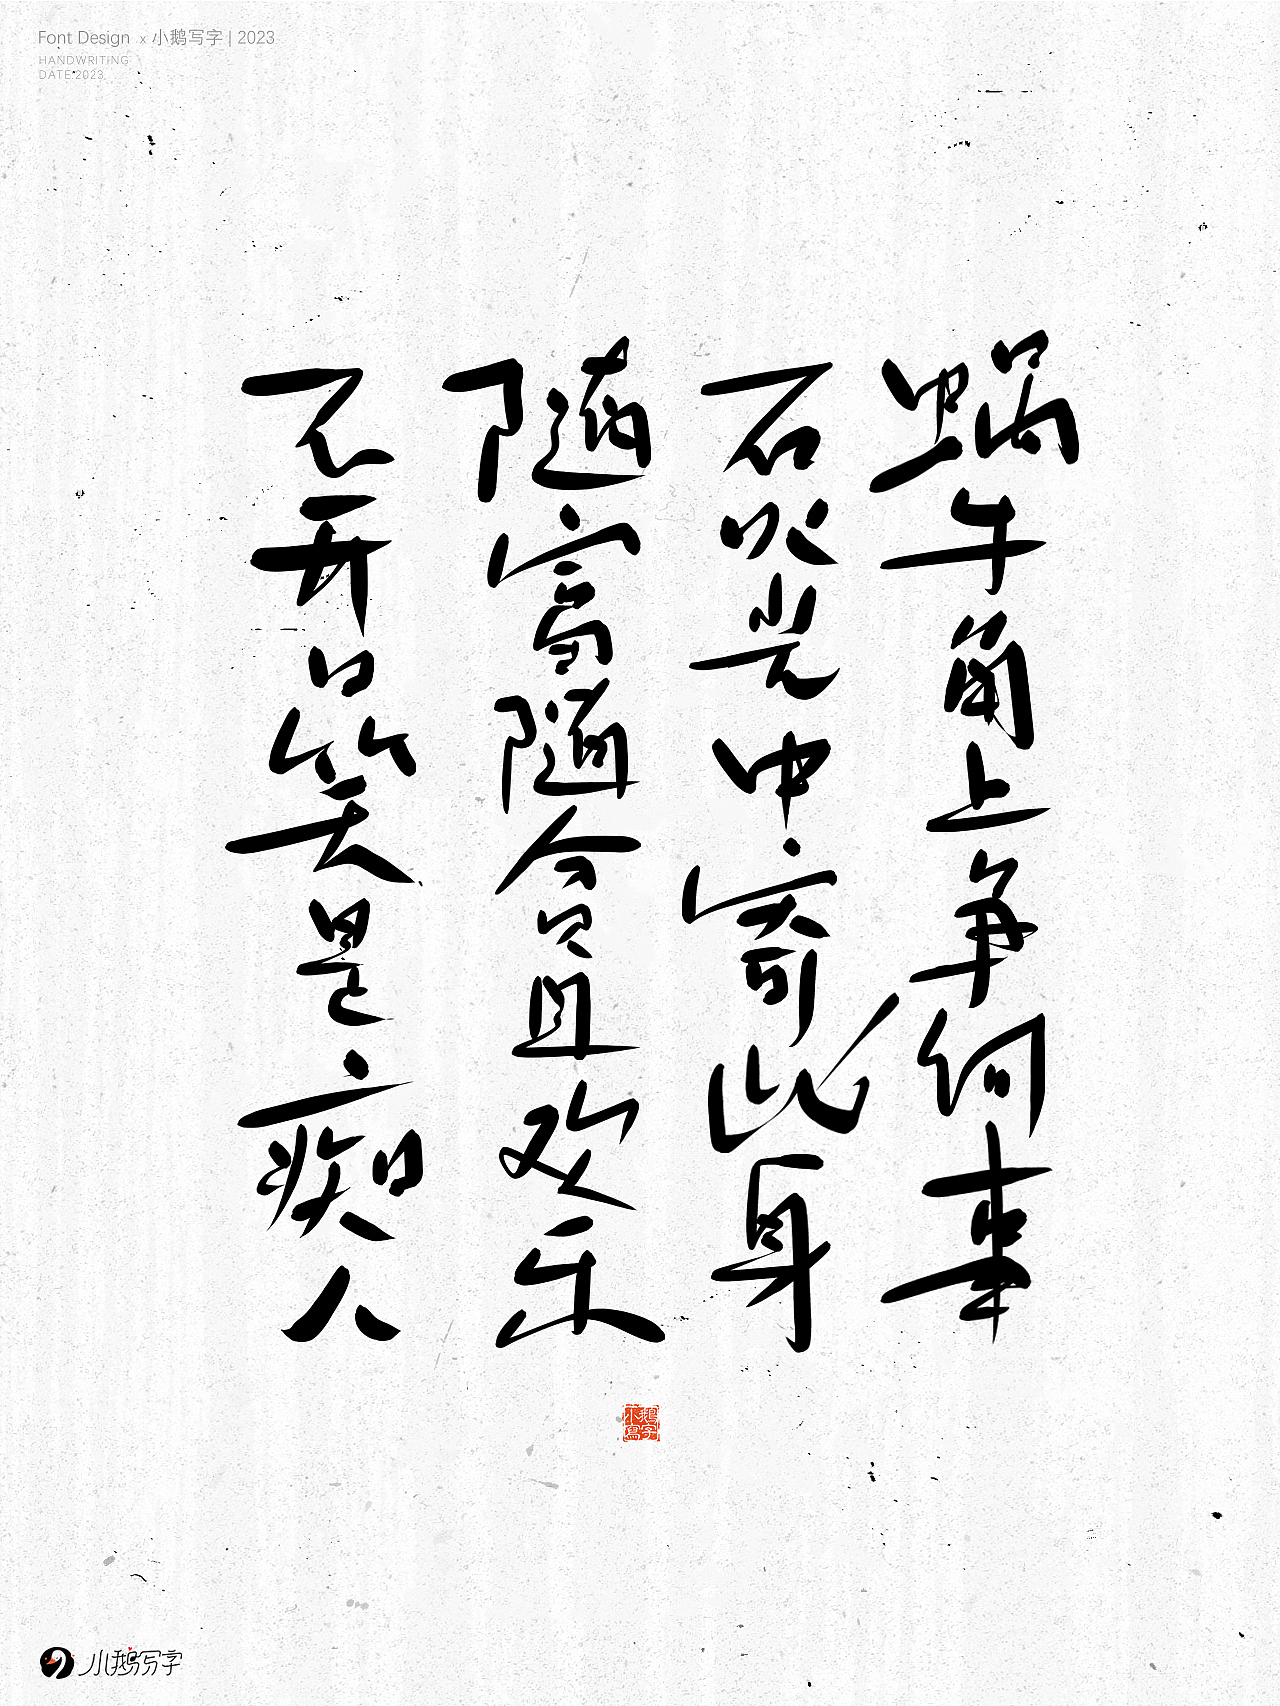 Font Design x 小鹅写字 | 2023
HANDWRITING
DATE:2023
蜗牛角上争何事
石火光中寄此身
随富随贫且欢乐
不开口笑是痴人
小鹅写字
小鹅写字